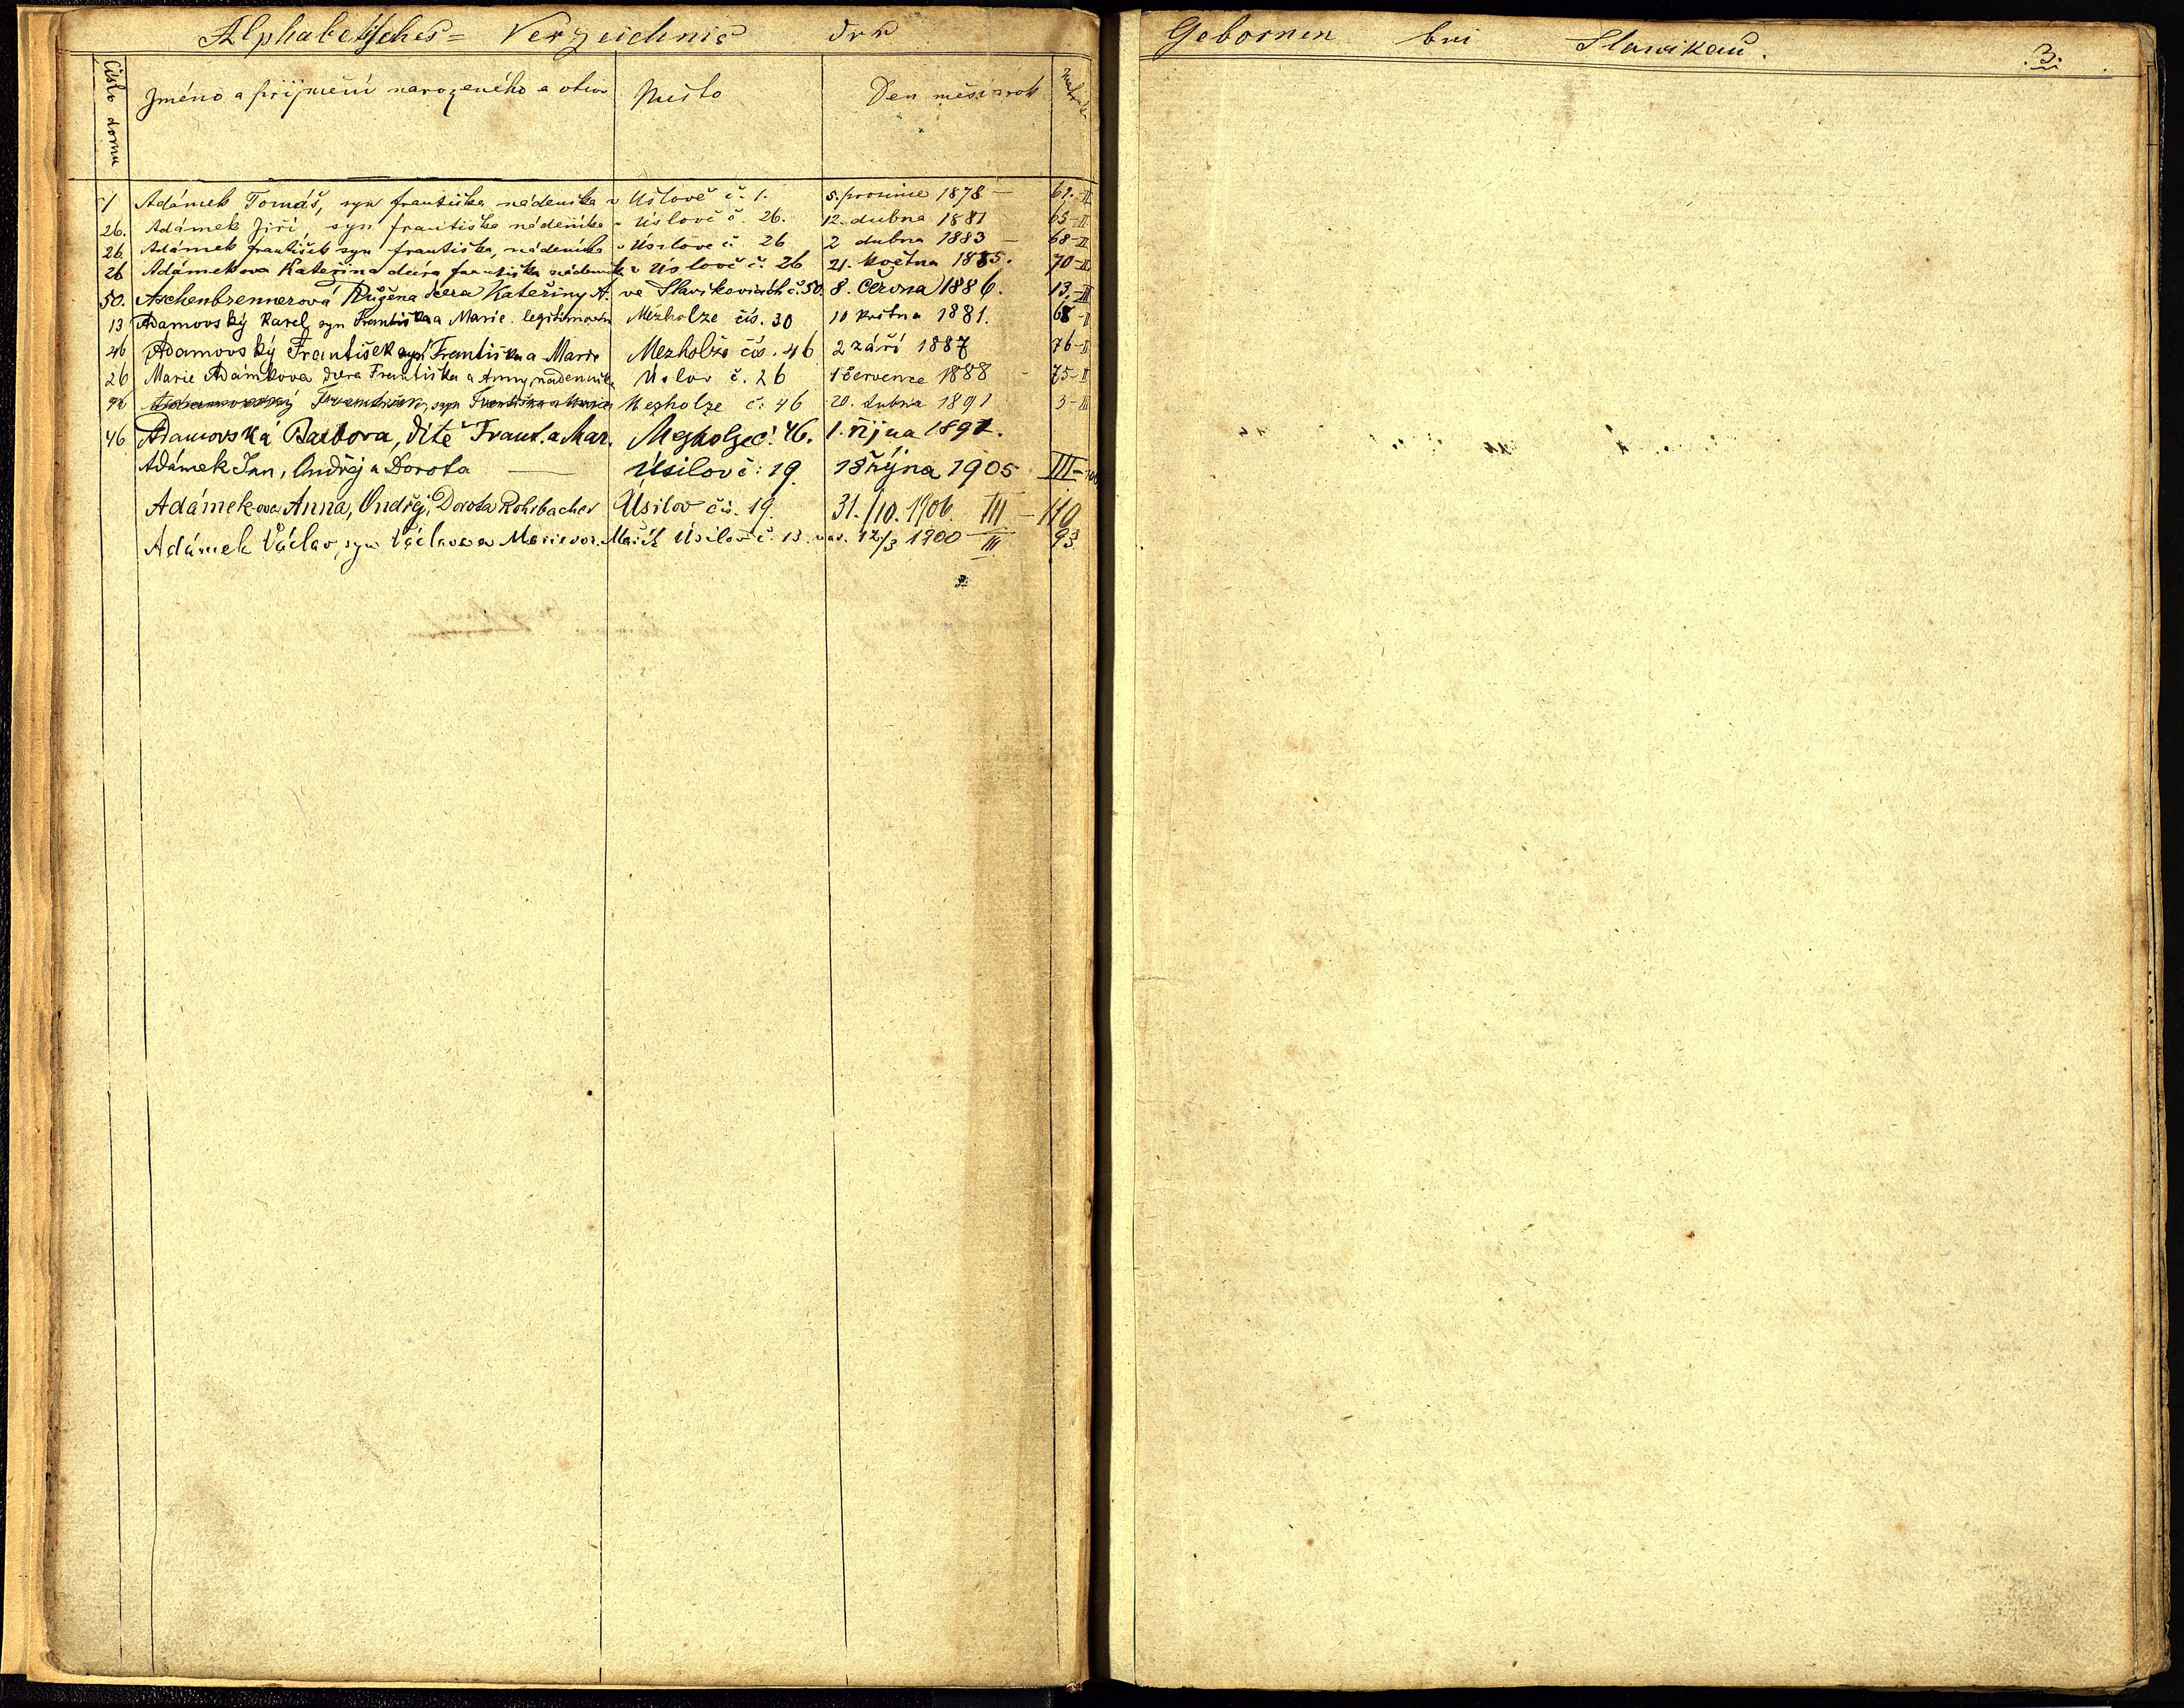 Alphabetisches = Verzeichnis der Gebornen bei Slawikau. .3.
Číslo domu Jméno a příjmení narozeného a otce Místo Den měsíc a rok
1 Adámek Tomáš, syn františka nádeníka v Úslově č. 1. 5. prosince 1878 — 61.-II
26. Adámek Jiří, syn františka nádeníka v Úslově č. 26. 12. dubna 1881 65-II
26. Adámek františek syn františka, nádeníka v Úsilove č 26 2 dubna 1883 — 68-II
26 Adámekova Kateřina dcéra františka nádeník v Úslově č. 26 21. května 1885. 70-II
50. Aschenbrennerová Růžena dcera Kateřiny A. ve Slavíkovicích č. 50. 8. Června 1886. 13.-III
13 Adamovský Karel, syn Františka a Marie. Mezholze čís. 30 10 května 1881. 68-II
46 Adamovský František syn Františka a Marie Mezholze čís. 46 2 září 1887 76-II
26 Marie Adámkova dcera Františka a Anny, nádenníka Úslov č. 26 1 července 1888 - 75-II
46 Adamovský František, syn Františka a Marie Mezholze č. 46 20. dubna 1891 3-III
46 Adamovská Barbora, dítě Frant. a Mar. Mezholze č. 46. 1. října 1892.
Adámek Jan, Ondřej a Dorota — Úsilov č: 19. 18 října 1905 III-
Adámek-ova Anna, Ondřej, Dorota Rohrbacher Úsilov čís. 19. 31./10. 1906. III - 110
Adámek Václav, syn Václava a Marie roz. Mařík Úsilov č. 13. nar. 12/3 1900 — III 93